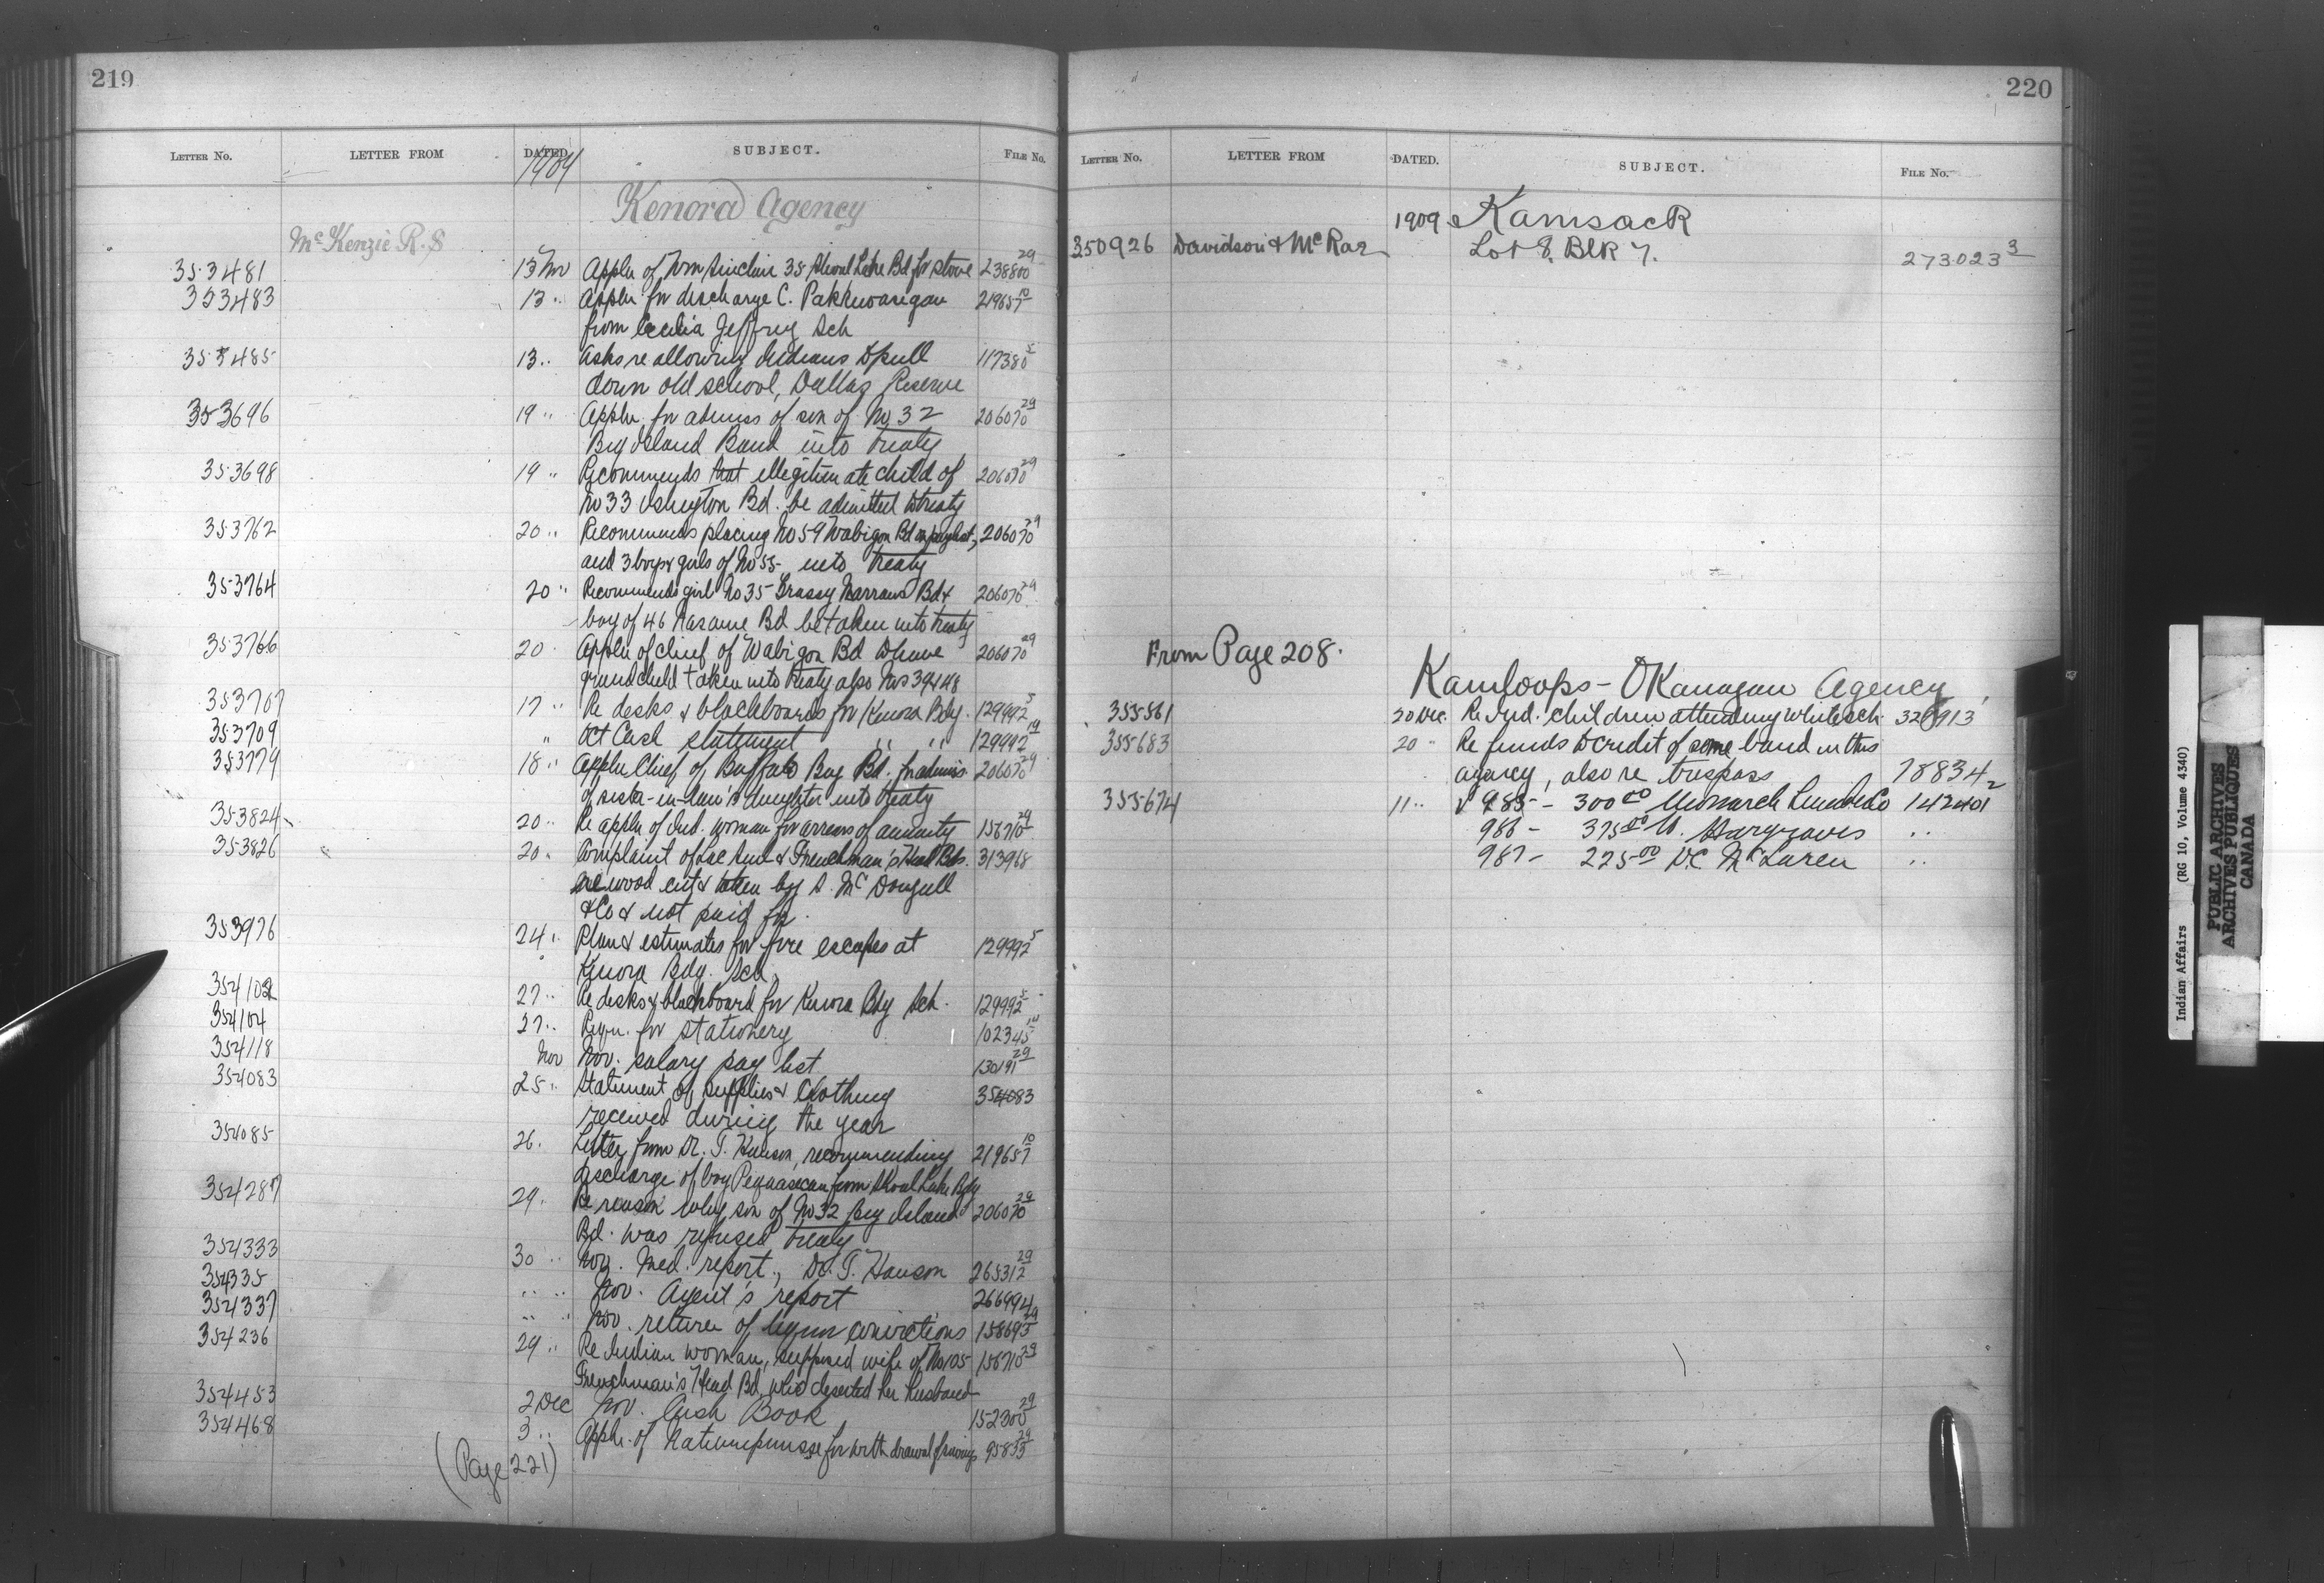 219
LETTER NO. LETTER FROM DATED SUBJECT. FILE No.
1909
Kenora Agency
McKenzie R. S
353481 13 Nov Appln of Wm Sinclair 35 Shoal Lake Bd for stove 238800 29
353483 13 " Appln for discharge C. Pakkuwasigan 219657 10
from Cecilia Jeffrey Sch
353485 13 " Asks re allowing Indians to pull 117380 5
down old school, Dalles Reserve
353696 19 " Appln for admiss of son of No 32 206070 29
Big Island Band into treaty
353698 19 " Recommends that illegitimate child of 206070 29
No 33 Isington Bd. be admitted to treaty
353762 20 " Recommends placing No 59 Wabigon Bd on paylist, 206070 29
and 3 boys & girls of No 55 into treaty
353764 20 " Recommends girl No 35 Grassy Narrows Bd & 206070 29
boy of 46 same Bd be taken into treaty
353766 20 " Appln of chief of Wabigon Bd to have 206070 29
grandchild taken into treaty also Nos 39 & 48
353707 17 " Re desks & blackboards for Kenora Bdg. 129992 5
353709 " Oct Cash statement " " 129992 14
353779 18 " Appln Chief of Buffalo Bay Bd. for admiss 206070 29
of sister-in-law's daughter into treaty
353824 20 " Re appln of Ind. woman for arrears of annuity 156710 29
353826 20 " Complaint of Lac Seul & Frenchman's Head Bds. 313968
re wood cut & taken by A. McDougall
& Co & not paid for.
353976 24 " Plan & estimates for fire escapes at 129992 5
Kenora Bdg. Sch.
354102 27 " Re desks & blackboard for Kenora Bdg Sch. 129992 5
354104 27 " Reqn. for stationery 102345 14
354118 Nov Nov. salary pay list 130191 29
354083 25 " Statement of supplies & clothing 354083
received during the year
354085 26 " Letter from Dr. T. Hanson, recommending 219657 10
discharge of boy from Shoal Lake Bdg
354287 29 " Re reason why son of No 32 Big Island 206070 29
Bd. was refused treaty
354333 30 " Nov. Med. report, Dr. T. Hanson 265312 29
354335 " " Nov. Agent's report 266994
354337 " " Nov. return of liquor convictions 158695 29
354236 29 " Re Indian woman, supposed wife of No 105 156710 29
Frenchman's Head Bd, who deserted her husband
354453 2 Dec Nov. Cash Book 152300 29
354468 3 " Appln. of for withdrawal of savings 95835 29
(Page 221)
220
LETTER NO. LETTER FROM DATED. SUBJECT. FILE No.
1909 Kamsack
350926 Davidson & McRae Lot 8. Blk 7. 273023 3
From Page 208.
Kamloops-Okanagan Agency
355561 20 Dec. Re Ind. children attending white sch. 320913
355683 20 " Re funds to credit of some band in this
agency, also re trespass 78834 2
355674 11 " V 985 - 300 00 Monarch Lumber Co 142401
986 - 375 00 W. Hargraves "
987 - 225 00 D.C. McLaren "
Indian Affairs (RG 10, Volume 4340)
PUBLIC ARCHIVES
ARCHIVES PUBLIQUES
CANADA